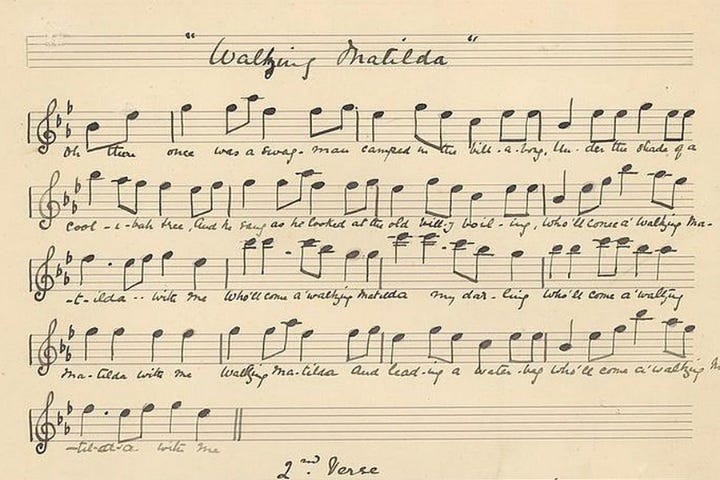 "Waltzing Matilda"
Oh there once was a swag-man camped in the bill-a-bong, Un-der the shade of a
cool-i-bah tree, And he sang as he looked at the old bill-y boil-ing, who'll come a' waltzing Ma-
-t-ilda -- with me Who'll come a' waltzing Matilda my dar-ling Who'll come a' waltzing
Ma-tilda with me Waltzing Ma-tilda And lead-ing a water-bag Who'll come a' waltzing
-til-d-a with me
2nd. Verse